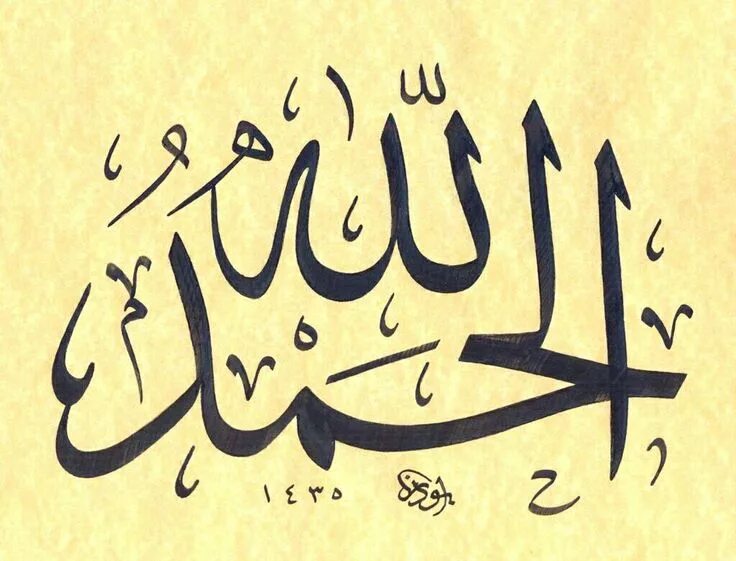 الحمدُ لله
١٤٣٥